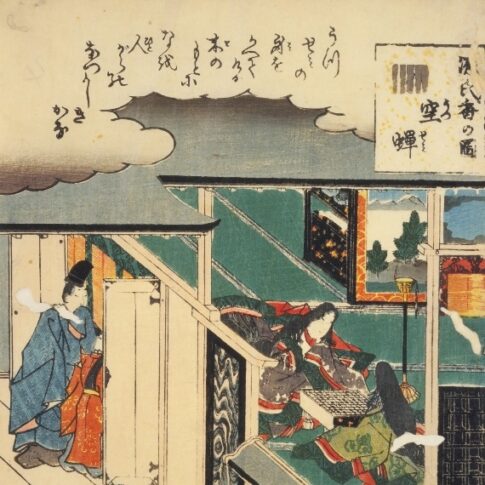 源氏香の圖
空蝉
うつ
せみの
身を
かへて
ける
木の
もとに
な越
人
からの
なつかし
き
かな